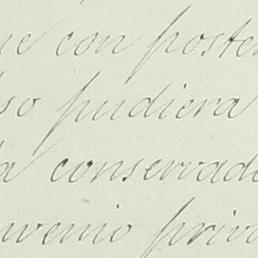 ue con poste
so pudiera
a conservad
nvenio priv